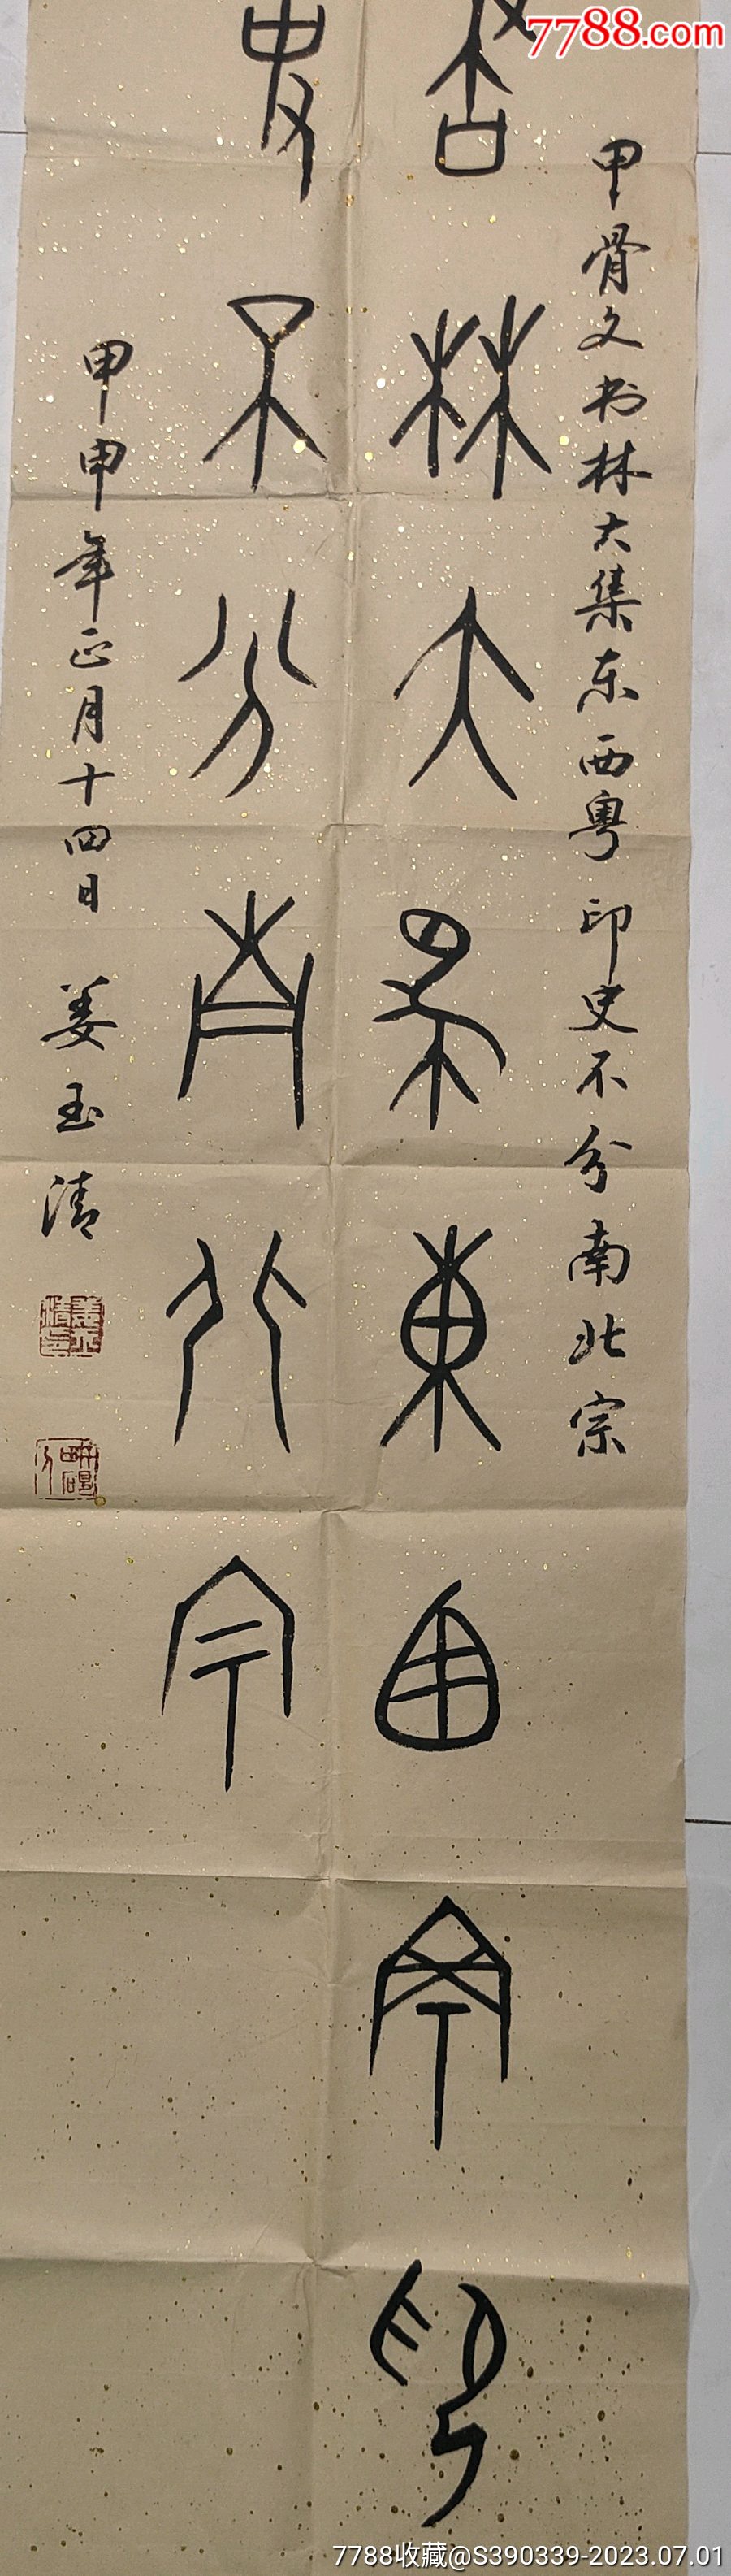 7788.com
甲骨文书林大集东西粤印史不分南北宗
书林大集东西粤印
史不分南北宗
甲申年正月十四日 姜玉清
7788收藏@S390339-2023.07.01